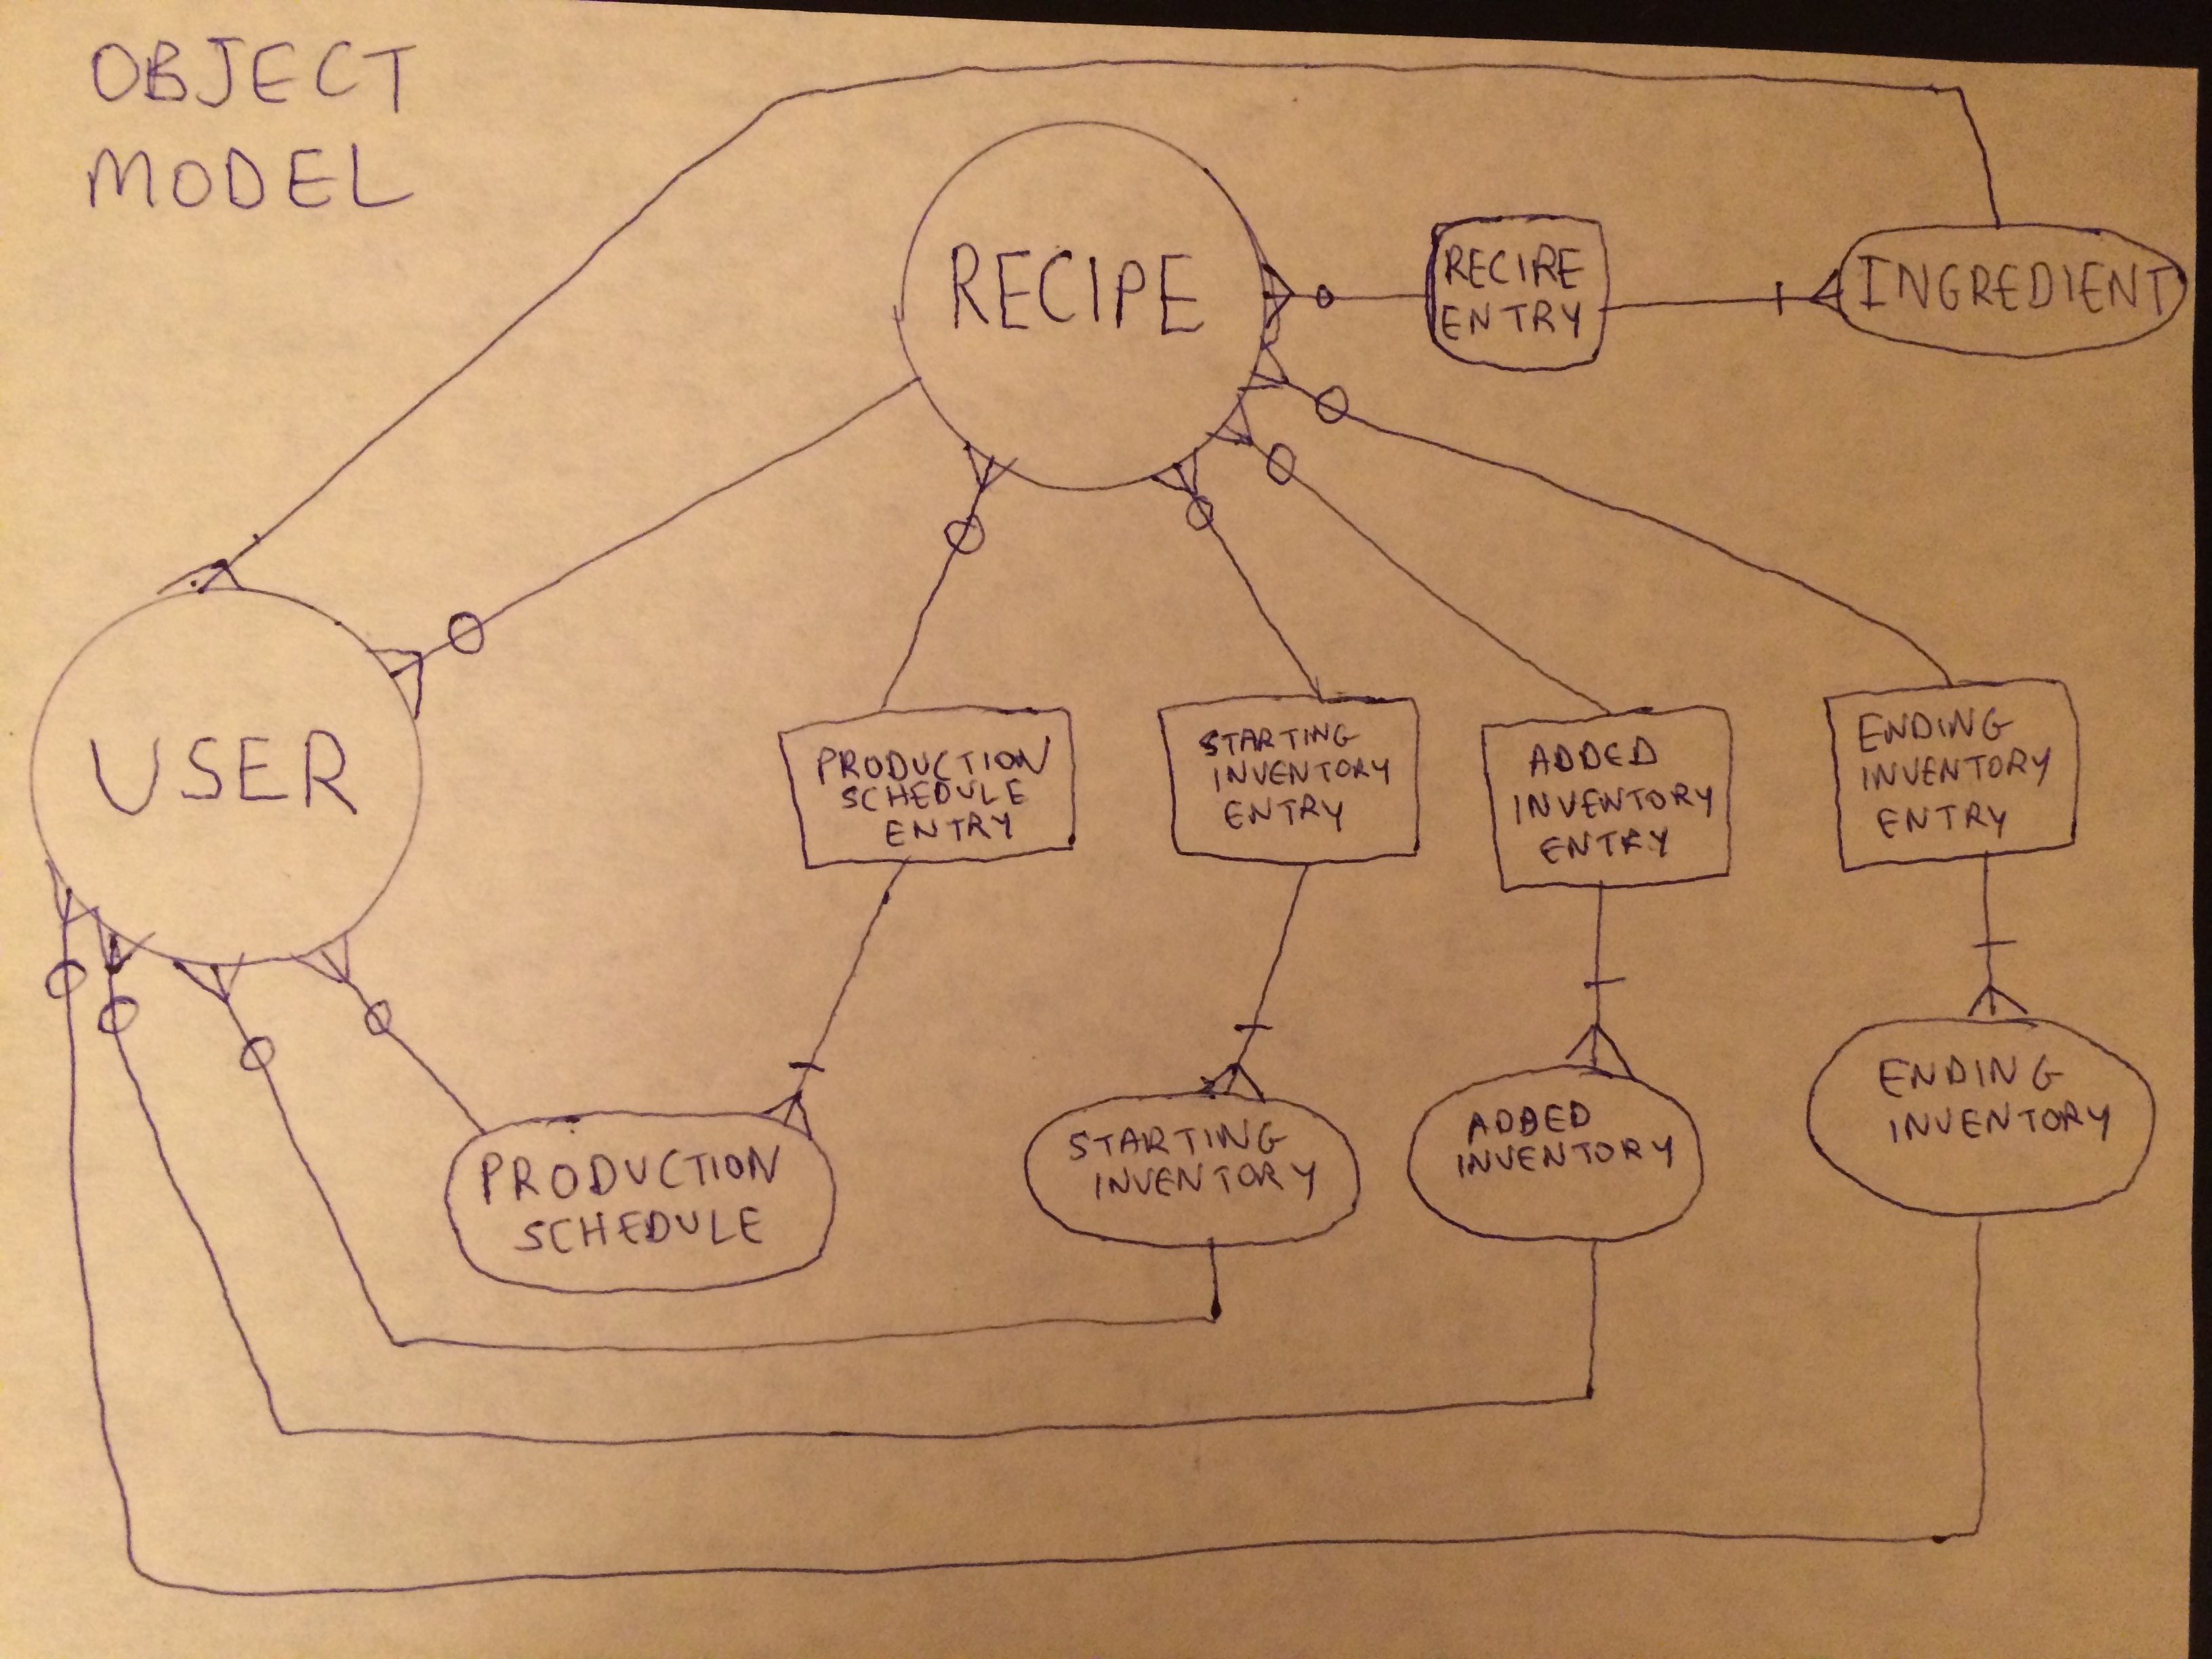 OBJECT
MODEL
RECIPE
RECIPE
ENTRY
INGREDIENT
USER
PRODUCTION
SCHEDULE
ENTRY
STARTING
INVENTORY
ENTRY
ADDED
INVENTORY
ENTRY
ENDING
INVENTORY
ENTRY
PRODUCTION
SCHEDULE
STARTING
INVENTORY
ADDED
INVENTORY
ENDING
INVENTORY